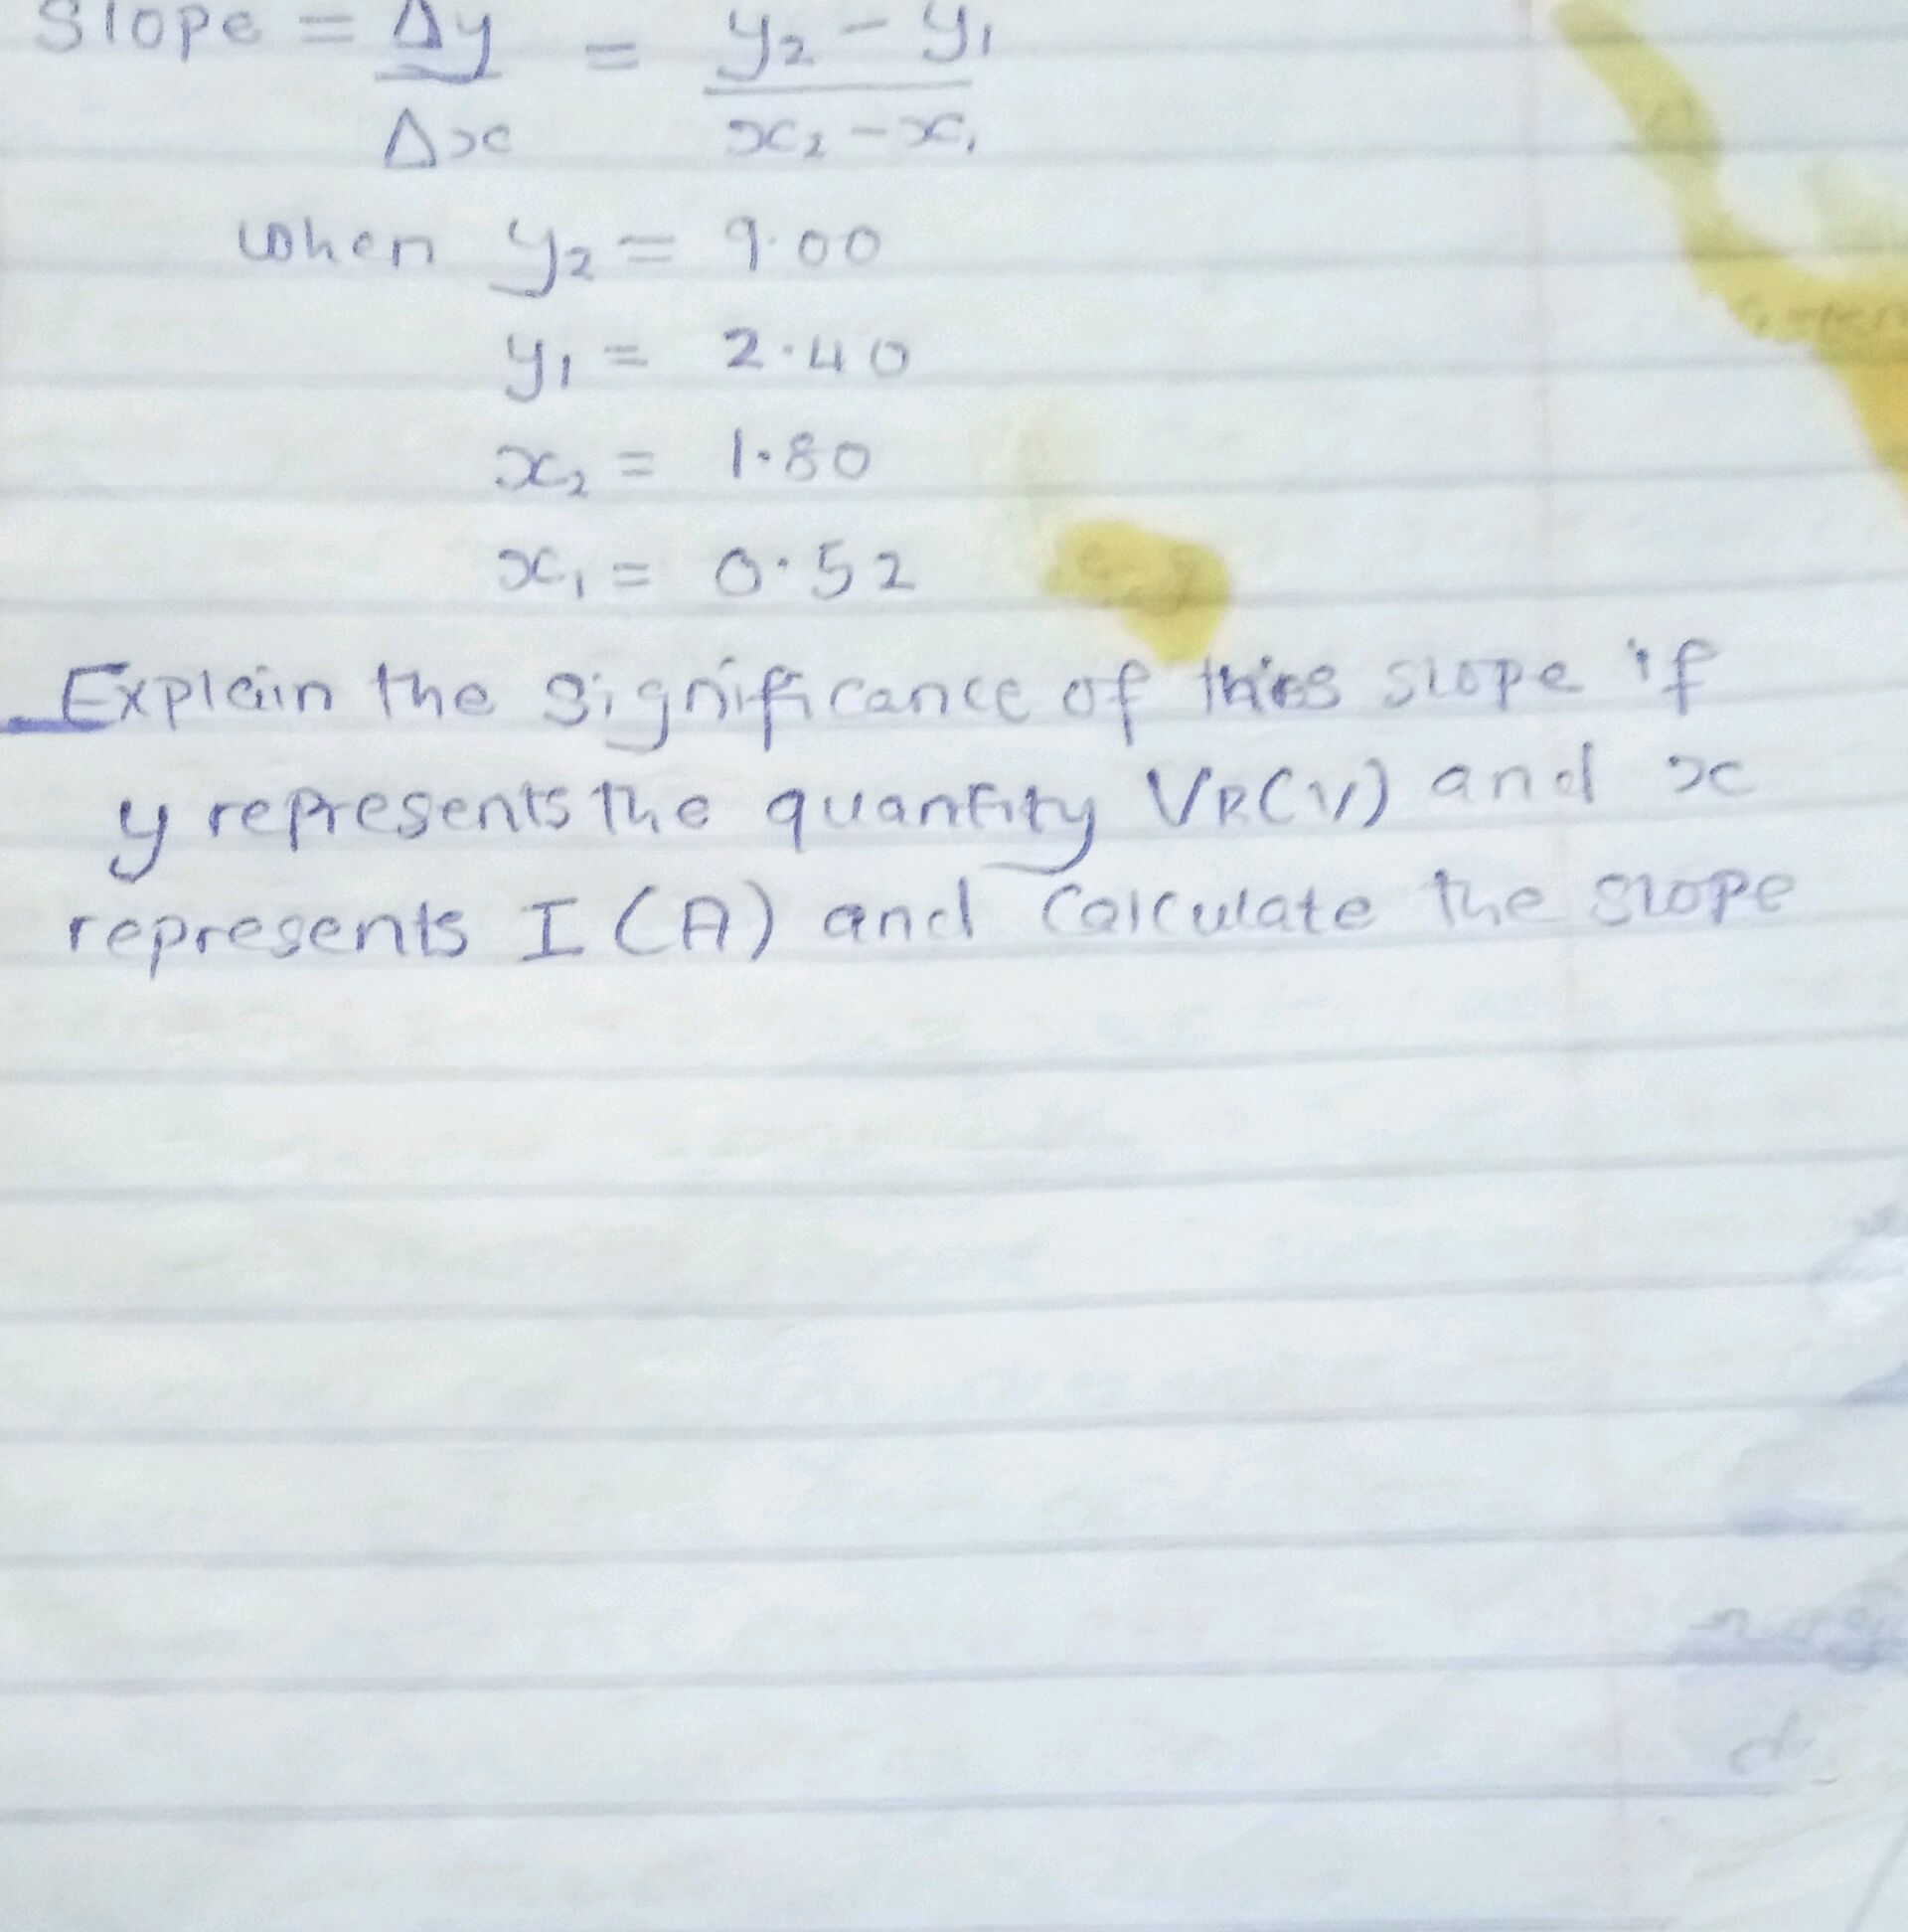 Slope = Δy = y₂ - y₁
Δx x₂ - x₁
when y₂ = 9.00
y₁ = 2.40
x₂ = 1.80
x₁ = 0.52
Explain the significance of this slope if
y represents the quantity VR(V) and x
represents I (A) and calculate the slope